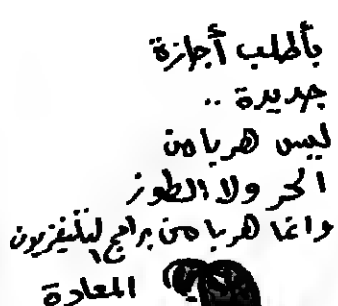 بأطلب أجازة
جديدة ..
ليس هربا من
الحر ولا الطوز
وانما هربا من برامج التليفزيون
المعادة